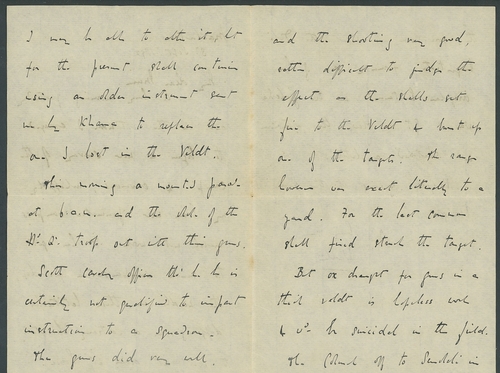 I may be able to alter it, but
for the present shall continue
using an older instrument sent
me by Khama to replace the
one I lost in the Veldt.
This morning a mounted parade
at 6 a.m. and the whole of the
troop out with their guns.
Scott cavalry officer tho' he is
certainly not qualified to impart
instruction to a squadron.
The guns did very well.
and the shooting very good,
rather difficult to judge the
effect as the shells set
fire to the Veldt & burnt up
one of the targets. The range
however was exact literally to a
yard. For the last common
shell fired struck the target.
But ox draught for guns in a
thick veldt is hopeless work
& wd. be suicidal in the field.
The Colonel off to in